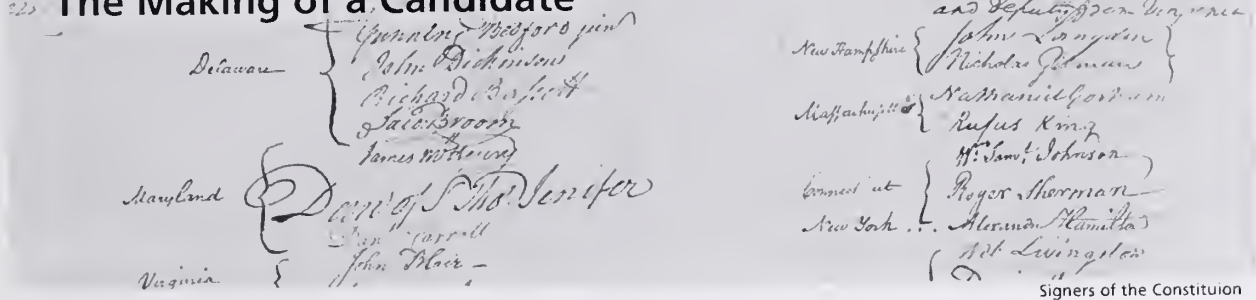 The Making of a Candidate
Delaware
Gunning Bedford jun
John Dickinson
Richard Bassett
Jaco: Broom
James McHenry
Maryland
Dan of St Thos. Jenifer
Dan Carroll
Virginia
John Blair –
and deputy from Virginia
New Hampshire
John Langdon
Nicholas Gilman
Massachusetts
Nathaniel Gorham
Rufus King
Connect ut
Wm. Saml. Johnson
Roger Sherman
New York . .
Alexander Hamilton
Wil Livingston
Signers of the Constituion